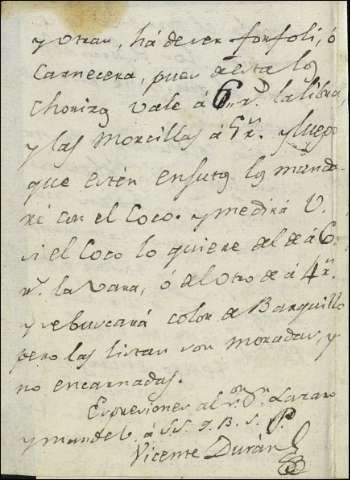 y Vtran, há de ser forfoli, ó
Carnecera, pues á esta los
Chorizos vale á 6 rs. la libra,
y las Morcillas á 5 rs. y luego
que estén ensutos los manda-
ré con el Coco. y me dirá V.
si el Coco lo quiere del de á 6
rs. la Vara, ó del otro de á 4 rs.
y se buscará color de Barquillo
pero las listas son moradas, y
no encarnadas.
Expresiones al Sr. Dn. Lazaro
y mande V. á S.S. q. B. S. P.
Vicente Durán